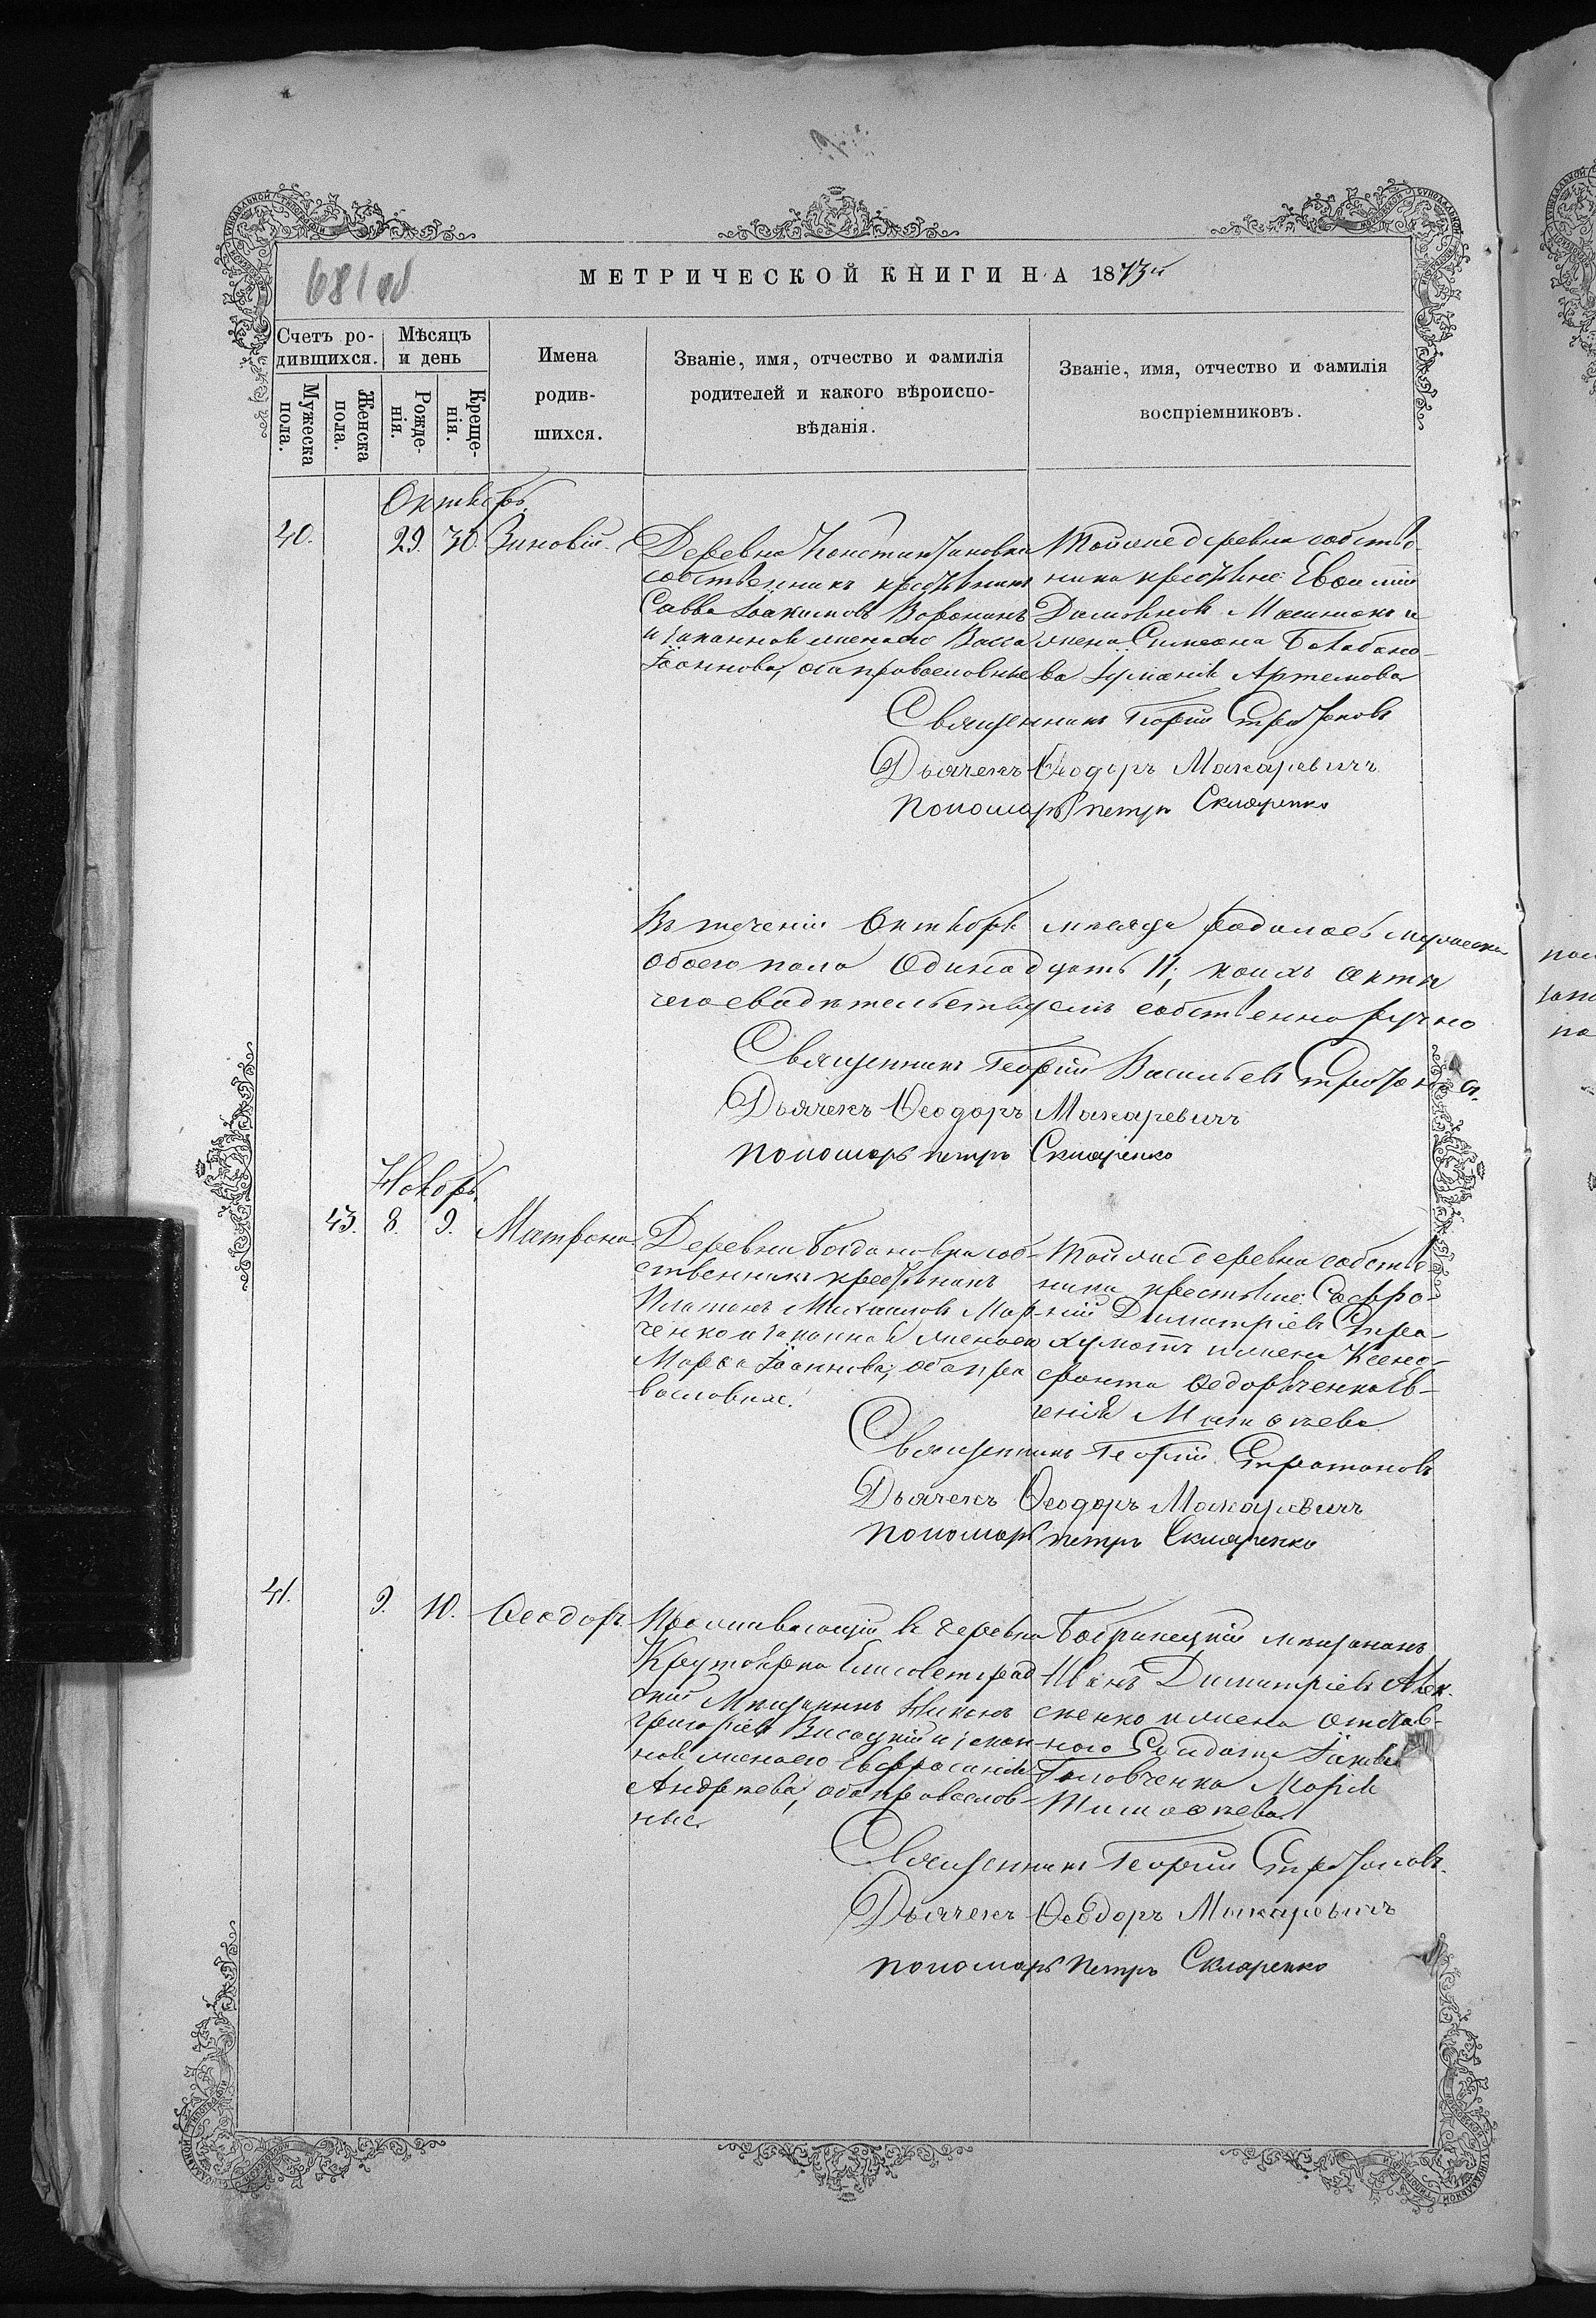 681 об
МЕТРИЧЕСКОЙ КНИГИ НА 1873й
Счетъ ро-
дившихся.
Мѣсяцъ
и день
Мужеска
пола.
Женска
пола.
Рожде-
нія.
Креще-
нія.
Имена
родив-
шихся.
Званіе, имя, отчество и фамилія
родителей и какого вѣроиспо-
вѣданія.
Званіе, имя, отчество и фамилія
воспріемниковъ.
Октябрь.
40. 29. 30. Зиновій.
Деревни Константиновки
собственникъ крестьянинъ
Савва Іоакимовъ Воронинъ
и законная жена его Васса
Іоаннова, оба православные
Той же деревни собстве-
ника крестьяне: Евѳимій
жена Симеона Балабано-
ва Іуланія Артемова
Священникъ Георгій Стратоновъ
Дьячекъ Ѳеодоръ Макаревичъ
пономарь петръ Скляренко
Въ теченіи Октября мѣсяца родилось мужеска
обоего пола Одинадцать 11; коихъ акты
чего свидѣтельствуемъ собственноручно
Священникъ Георгій Васильевъ Стратоновъ.
Дьячекъ Ѳеодоръ Макаревичъ
пономарь петръ Скляренко
Ноябрь.
43. 8. 9. Матрона.
Деревни Богдановки соб-
ственникъ крестьянинъ
Платонъ Михаиловъ Мар-
ченко и законная жена его
Марѳа Іоаннова, оба пра
вославные.
Той же деревни собстве-
ника крестьяне: Софро-
ній Димитріевъ Стра
и жена Ксено-
фонта Ѳедорченка Ев-
генія
Священникъ Георгій Стратоновъ
Дьячекъ Ѳеодоръ Макаревичъ
пономарь петръ Скляренко
41. 9. 10. Ѳеодоръ.
Проживающій въ деревнѣ
Крутоярка Елисаветград
скій Мѣщанинъ Никонъ
Григоріевъ Висоцкій и закон
ная жена его Евфросинія
Андреева, оба православ-
ные.
Бобринецкій мѣщанинъ
Иванъ Димитріевъ Алек-
сѣенко и жена отстав-
ного Солдата Іакова
Головченка Марія
Тимоѳеева
Священникъ Георгій Стратоновъ.
Дьячекъ Ѳеодоръ Макаревичъ
пономарь петръ Скляренко